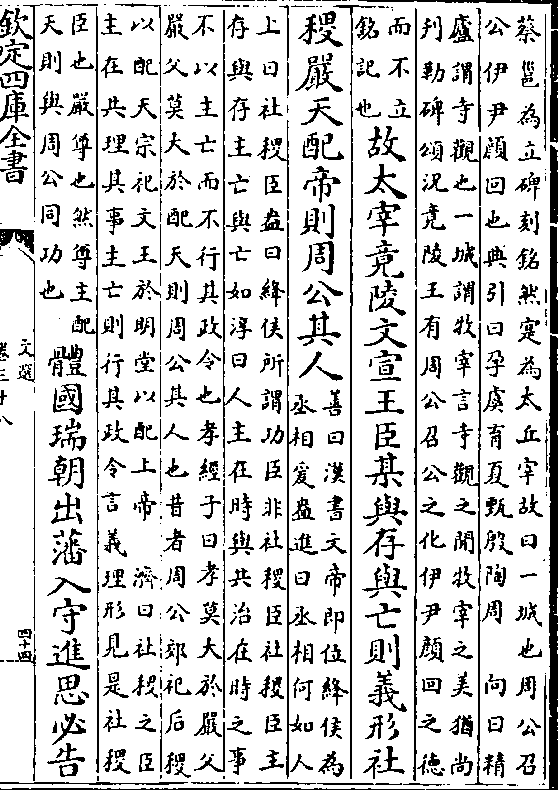 蔡邕為立碑刻銘然寔為太丘宰故曰一城也周公召
公伊尹顏回也典引曰孕虞育夏甄殷陶周　向曰精
廬謂寺觀也一城謂牧宰言寺觀之閒牧宰之美猶尚
刋勒碑頌況竟陵王有周公召公之化伊尹顏回之德
而不立
銘記也
故太宰竟陵文宣王臣某與存與亡則義形社
稷嚴天配帝則周公其人
善曰漢書文帝即位絳侯為
丞相爰盎進曰丞相何如人
上曰社稷臣盎曰絳侯所謂功臣非社稷臣社稷臣主
存與存主亡與亡如淳曰人主在時與共治在時之事
不以主亡而不行其政令也孝經子曰孝莫大於嚴父
嚴父莫大於配天則周公其人也昔者周公郊祀后稷
以配天宗祀文王於明堂以配上帝　濟曰社稷之臣
主在共理其事主亡則行其政令言義理形見是社稷
臣也嚴尊也然尊主配
天則與周公同功也
體國瑞朝出藩入守進思必告
欽定四庫全書
文選
卷三十八
四十四